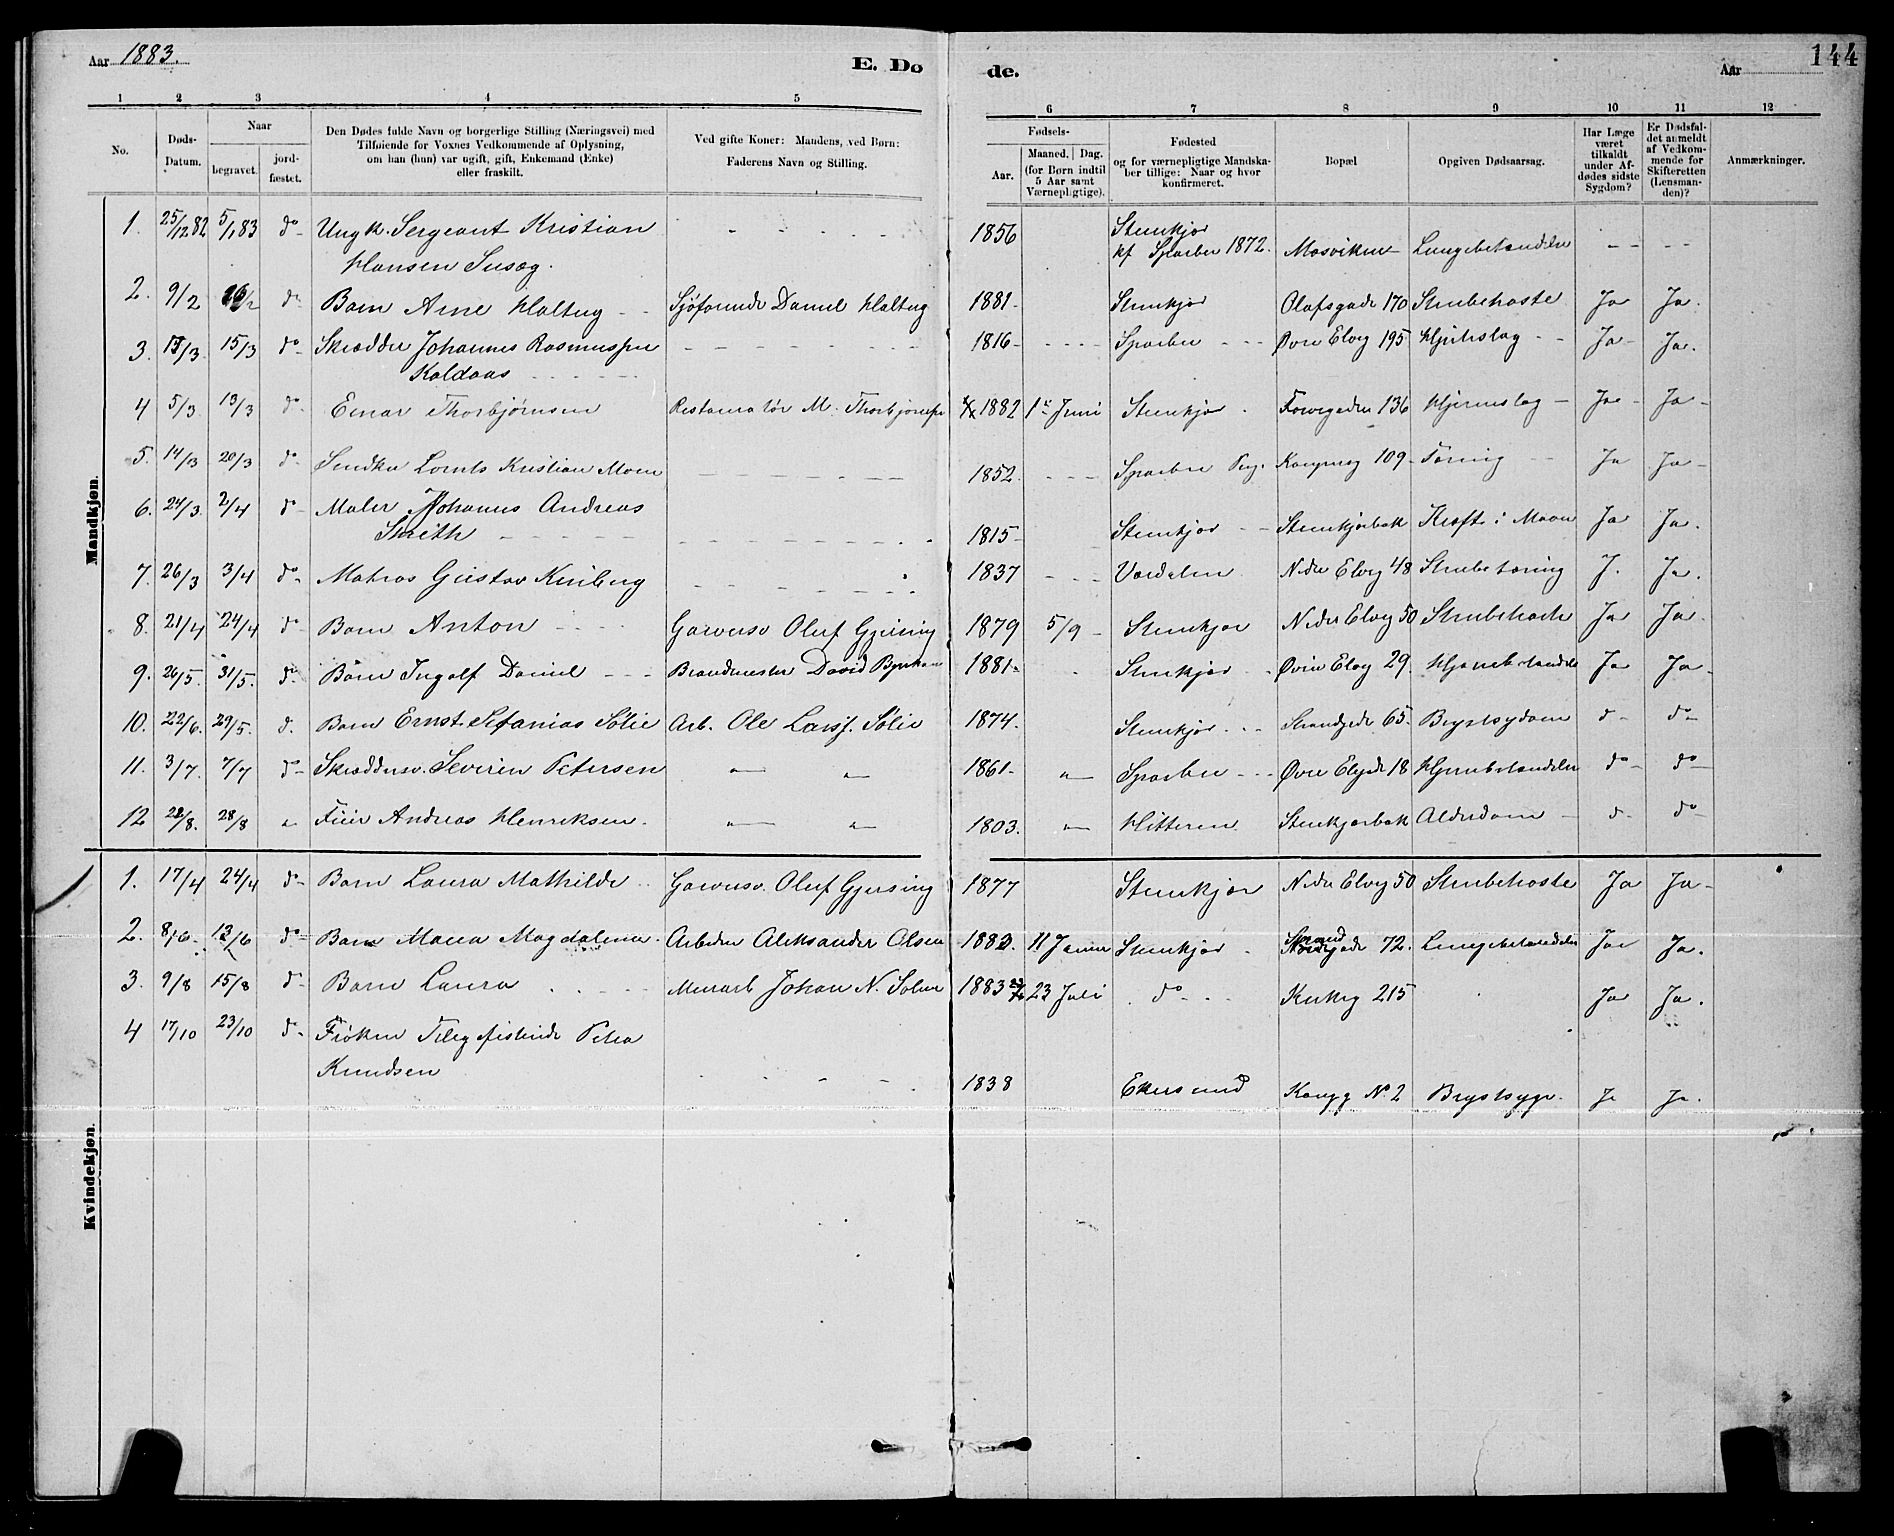 Aar 1883.
E. Dø
de.
Aar
144
1 2 3 4 5 6 7 8 9 10 11 12
No.
Døds-Datum.
Naar
begravet.
jord-fæstet.
Den Dødes fulde Navn og borgerlige Stilling (Næringsvei) med
Tilføiende for Voxnes Vedkommende af Oplysning,
om han (hun) var ugift, gift, Enkemand (Enke)
eller fraskilt.
Ved gifte Koner: Mandens, ved Børn:
Faderens Navn og Stilling.
Fødsels-
Aar.
Maaned. Dag.
(for Børn indtil
5 Aar samt
Værnepligtige).
Fødested
og for værnepligtige Mandska-
ber tillige: Naar og hvor
konfirmeret.
Bopæl
Opgiven Dødsaarsag.
Har Læge
været
tilkaldt
under Af-
dødes sidste
Sygdom?
Er Dødsfal-
det anmeldt
af Vedkom-
mende for
Skifteretten
(Lensman-
den)?
Anmærkninger.
Mandkjøn.
1. 25/12 82 5/1 83 do Ungk. Sergeant Kristian 1856 Stenkjær
Hansen kf Sparbu 1872. Mosviken Lungebetændelse
2. 9/2 do Barn Arne Holtug Sjøfarende Daniel Holtug 1881 Stenkjær Olafsgade 170 Strubehoste Ja Ja.
3. 15/3 do Skrædder Johannes Rasmussen 1816 Sparbu Øvre Elvg 195 Ja Ja.
Koldaas
4 5/3 13/3 do Einar Thorbjørnsen M. Thorbjørnsen 1882 1ste Juni Stenkjær 136 Hjerneslag Ja Ja
5. 14/3 20/3 do Kristian Moen 1852. Sparbu Kongensg 109 Tæring Ja Ja
6. 24/3 2/4 do Maler Johannes Andreas
Smith 1815 Stenkjær Stenkjærbak Kræft i Maven Ja Ja.
7. 26/3 3/4 do Matros Gustav 1837 Værdalen Nedre Elvg 48 Strubetæring J. Ja.
8. 21/4 24/4 do Barn Anton Garversv Oluf Gjersing 1879 5/9 Stenkjær Nedre Elvg 50 Strubehoste Ja Ja.
9. 26/5. 31/5. do Barn Ingolf Daniel Brandmester David 1881 Stenkjær Øvre Elvg 29. Ja Ja
10. 22/6. 29/5. d. Barn Ernst Stefanias Sølie Arb. Ole Larss. Sølie 1874. Stenkjær Strandgade 65. Brystsygdom do do
11. 3/7. 7/7 do Skræddersv. Severin Petersen 1861 Sparbu Øvre Elvgde 18 Hjernebetændelse do do
12 28/8 Andreas Henriksen. 1803. Hitteren Stenkjærbak Alderdom do do
Kvindekjøn.
1. 17/4 24/4 do Barn Laura Mathilde Garversv. Oluf Gjersing 1877 Stenkjær Nedre Elvg 50 Strubehoste Ja Ja
2. 8/6 do Barn Maria Magdalena Arbeider Aleksander Olsen 1882. 11 Stenkjær Strand
gade 72. Lungebetændelse Ja Ja.
3. 9/8 15/8 do Barn Laura Murarb Johan N. 1883 23 Juli do Kirkeg 215 Ja Ja.
4 17/10 23/10 do Frøken Telegrafistinde Petra
Knudsen 1838 Ekersund Kongg No. 2 Brystsyge. Ja Ja.